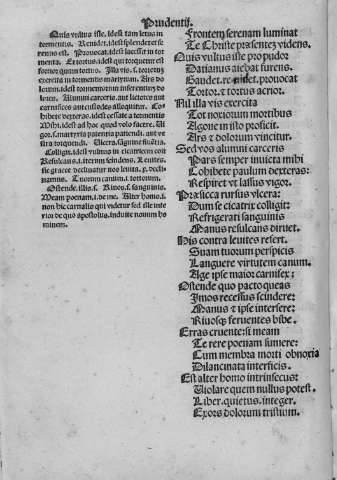 Prudentij.
Quis vultus iste. idest tam letus in
tormentis. Renidet. idest splendet et se
renus est. Prouocat. idest lacessit in tor
menta. Et tortus. idest qui torquetur est
fortior quam tortor. Illa vis. s. tortorum
exercita in tormentis martyrum. Ars do
lorum. idest tormentorum inferendorum do
lores. Alumni carceris. aut lictores aut
carnifices aut custodes alloquitur. Co
hibete dexteras. idest cessate a tormentis
Mihi. idest ad hoc quod volo facere. Vi
gor. s. martyris patientia patiendi. aut ve
stra torquendi. Ulcera. sanguine siccata.
Colligit. idest vulnus in cicatricem coit
Resulcans. i. iterum scindens. Leuites.
sic graece declinatur nos leuita. e. decli
namus. Tuorum canum. i. tortorum.
Ostende. illis. s. Riuos. s. sanguinis.
Meam poenam. i. de me. Alter homo. s.
non hic carnalis qui videtur sed ille inte
rior de quo apostolus. induite nouum ho
minem.
Frontem serenam luminat
Te Christe praesentem videns.
Quis vultus iste proh pudor
Datianus aiebat furens.
Gaudet. renidet. prouocat
Tortore tortus acrior.
Nil illa vis exercita
Tot noxiorum mortibus
Agone in isto proficit.
Ars et dolorum vincitur.
Sed vos alumni carceris
Pars semper inuicta mihi
Cohibete paulum dexteras:
Respiret vt lassus vigor.
Praesicca rursus vlcera:
Dum se cicatrix colligit:
Refrigerati sanguinis
Manus resulcans diruet.
His contra leuites refert.
Si iam tuorum perspicis
Languere virtutem canum.
Age ipse maior carnifex:
Ostende quo pacto queas
Imos recessus scindere:
Manus et ipse intersere:
Riuosque feruentes bibe.
Erras cruente: si meam
Te rere poenam sumere:
Cum membra morti obnoxia
Dilancinata interficis.
Est alter homo intrinsecus:
Violare quem nullus potest.
Liber. quietus. integer.
Exors dolorum tristium.